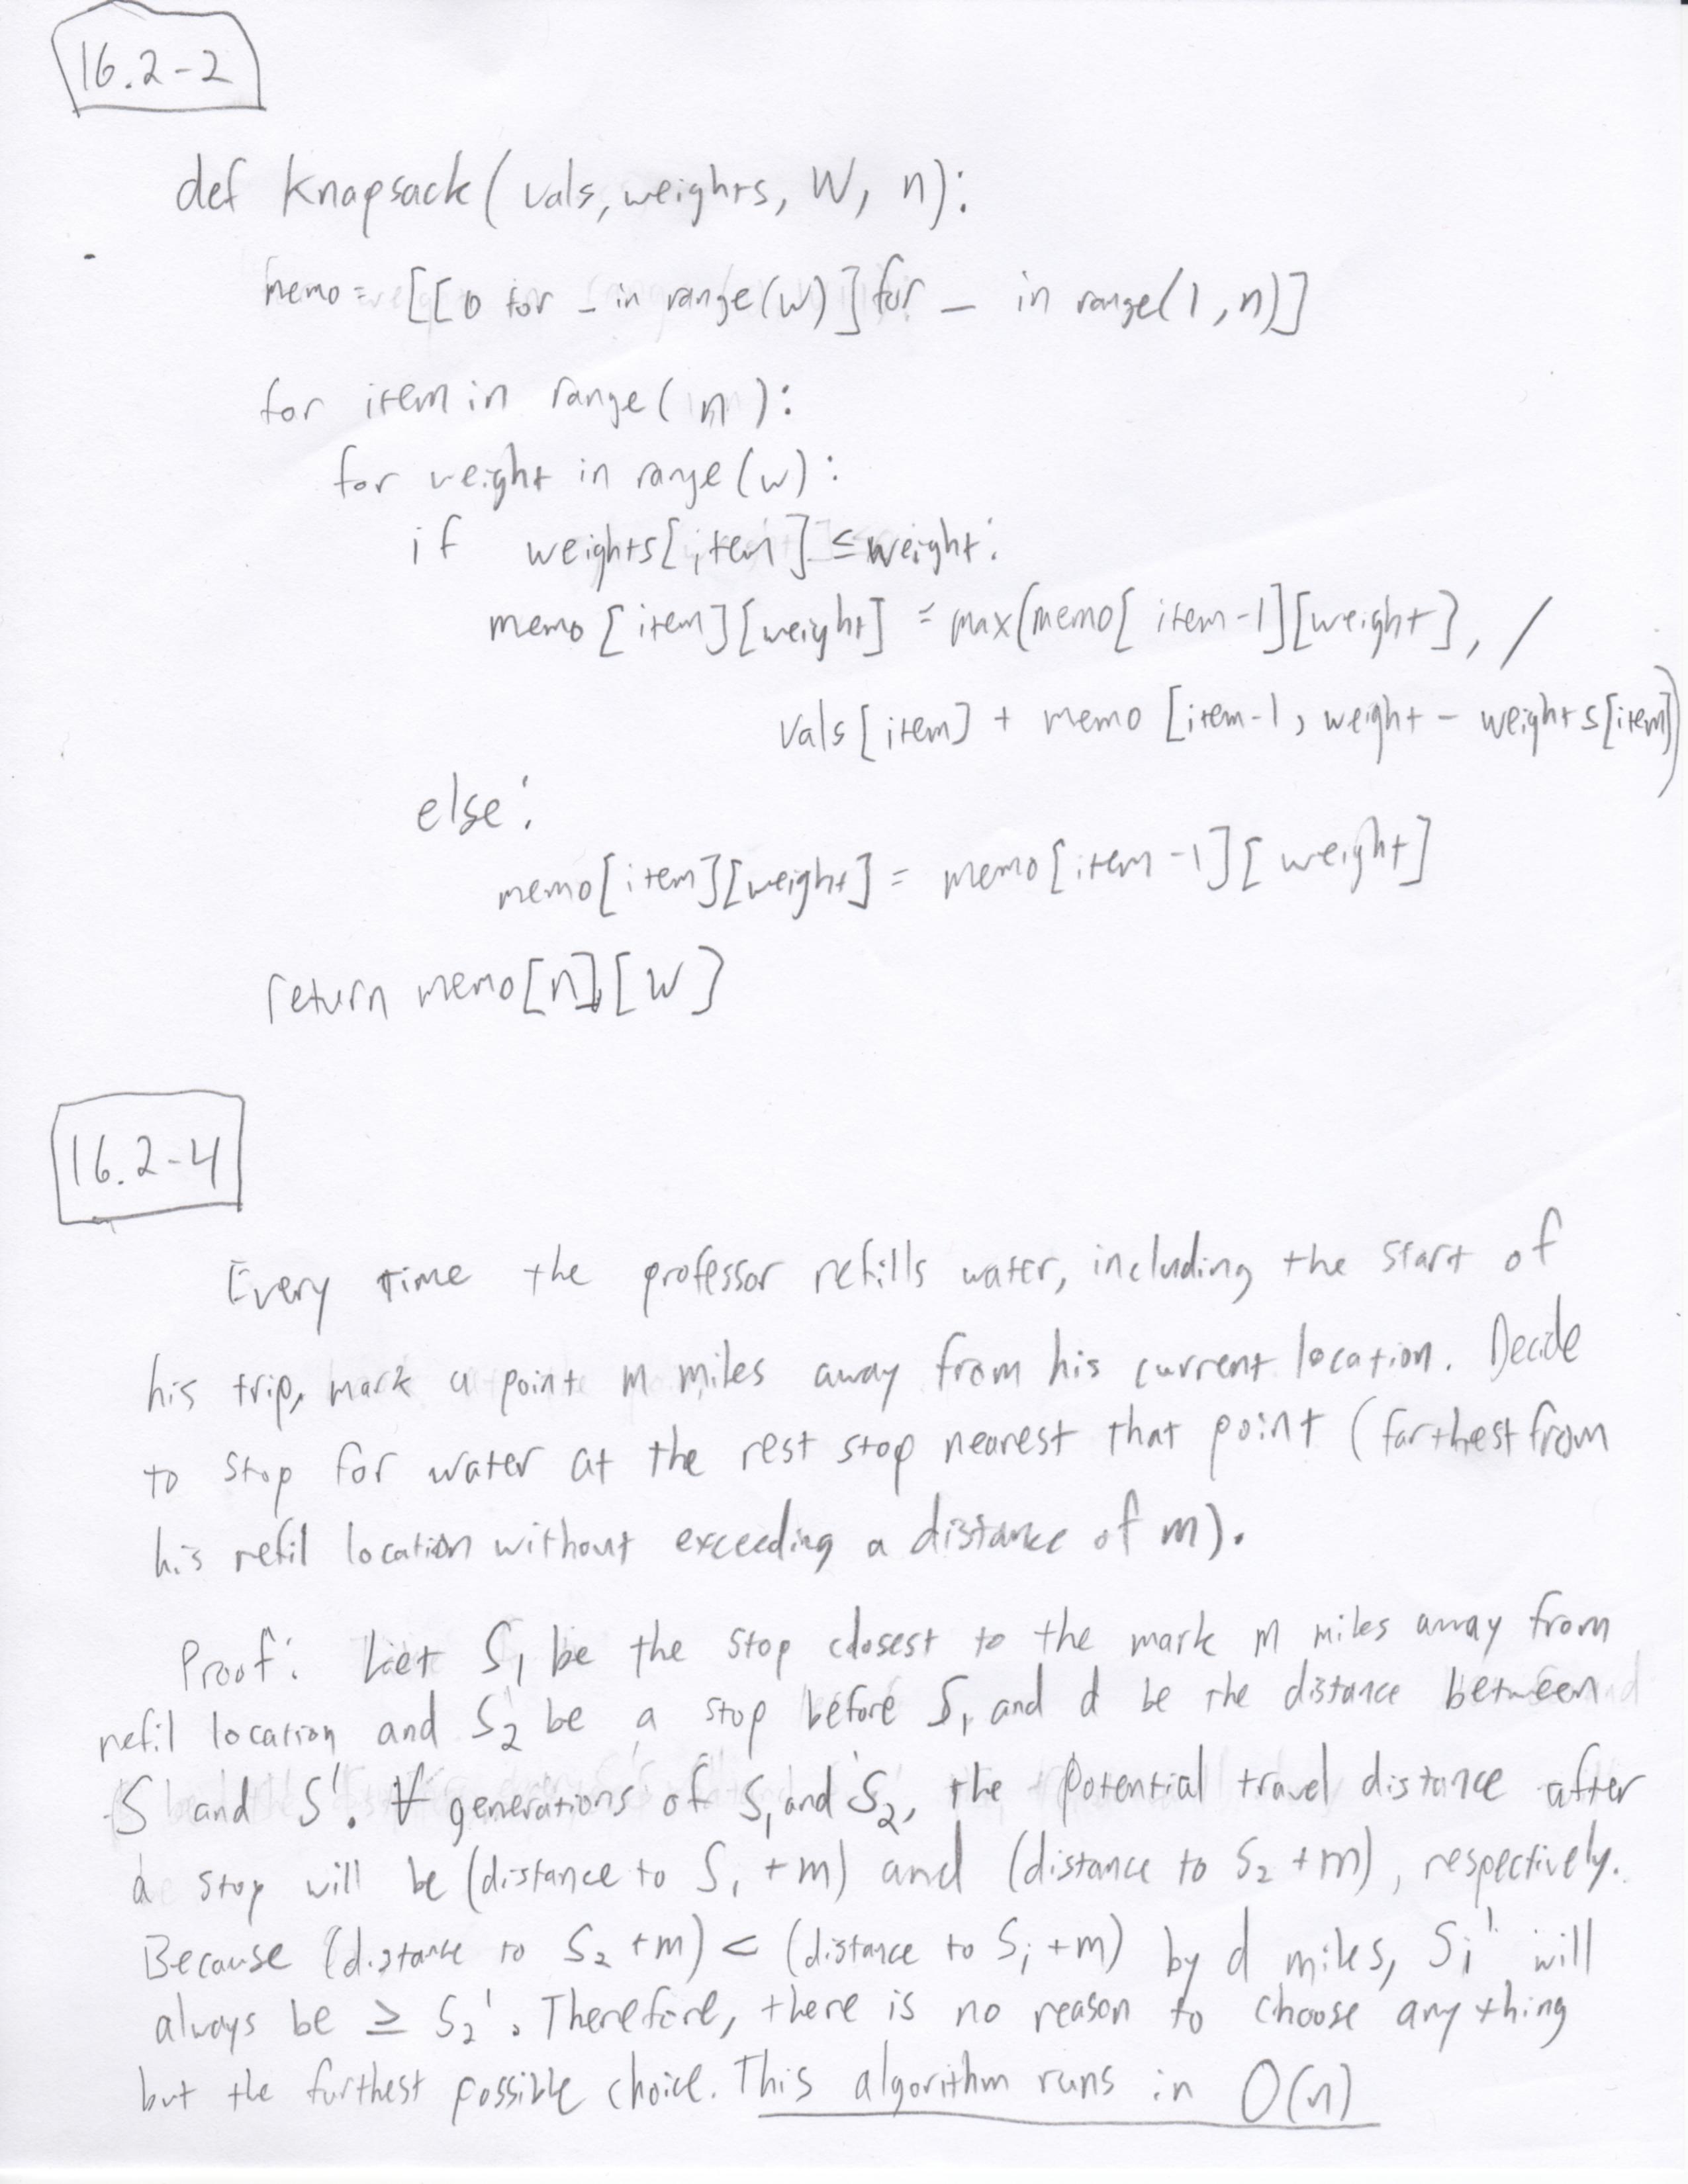 16.2-2
def Knapsack(vals, weights, W, n):
memo = [[0 for _ in range(W)] for _ in range(1, n)]
for item in range(n):
for weight in range(w):
if weights[item] ≤ weight:
memo[item][weight] = max(memo[item-1][weight], /
vals[item] + memo[item-1, weight - weights[item])
else:
memo[item][weight] = memo[item-1][weight]
return memo[n][W]
16.2-4
Every time the professor refills water, including the start of
his trip, mark a point m miles away from his current location. Decide
to stop for water at the rest stop nearest that point (farthest from
his refil location without exceeding a distance of m).
Proof: Let S₁ be the stop closest to the mark m miles away from
refil location and S₂ be a stop before S₁ and d be the distance between
S and S'. ∀ generations of S₁ and S₂, the potential travel distance after
a stop will be (distance to S₁ + m) and (distance to S₂ + m), respectively.
Because (distance to S₂ + m) < (distance to S₁ + m) by d miles, S₁' will
always be ≥ S₂'. Therefore, there is no reason to choose anything
but the furthest possible choice. This algorithm runs in O(n)